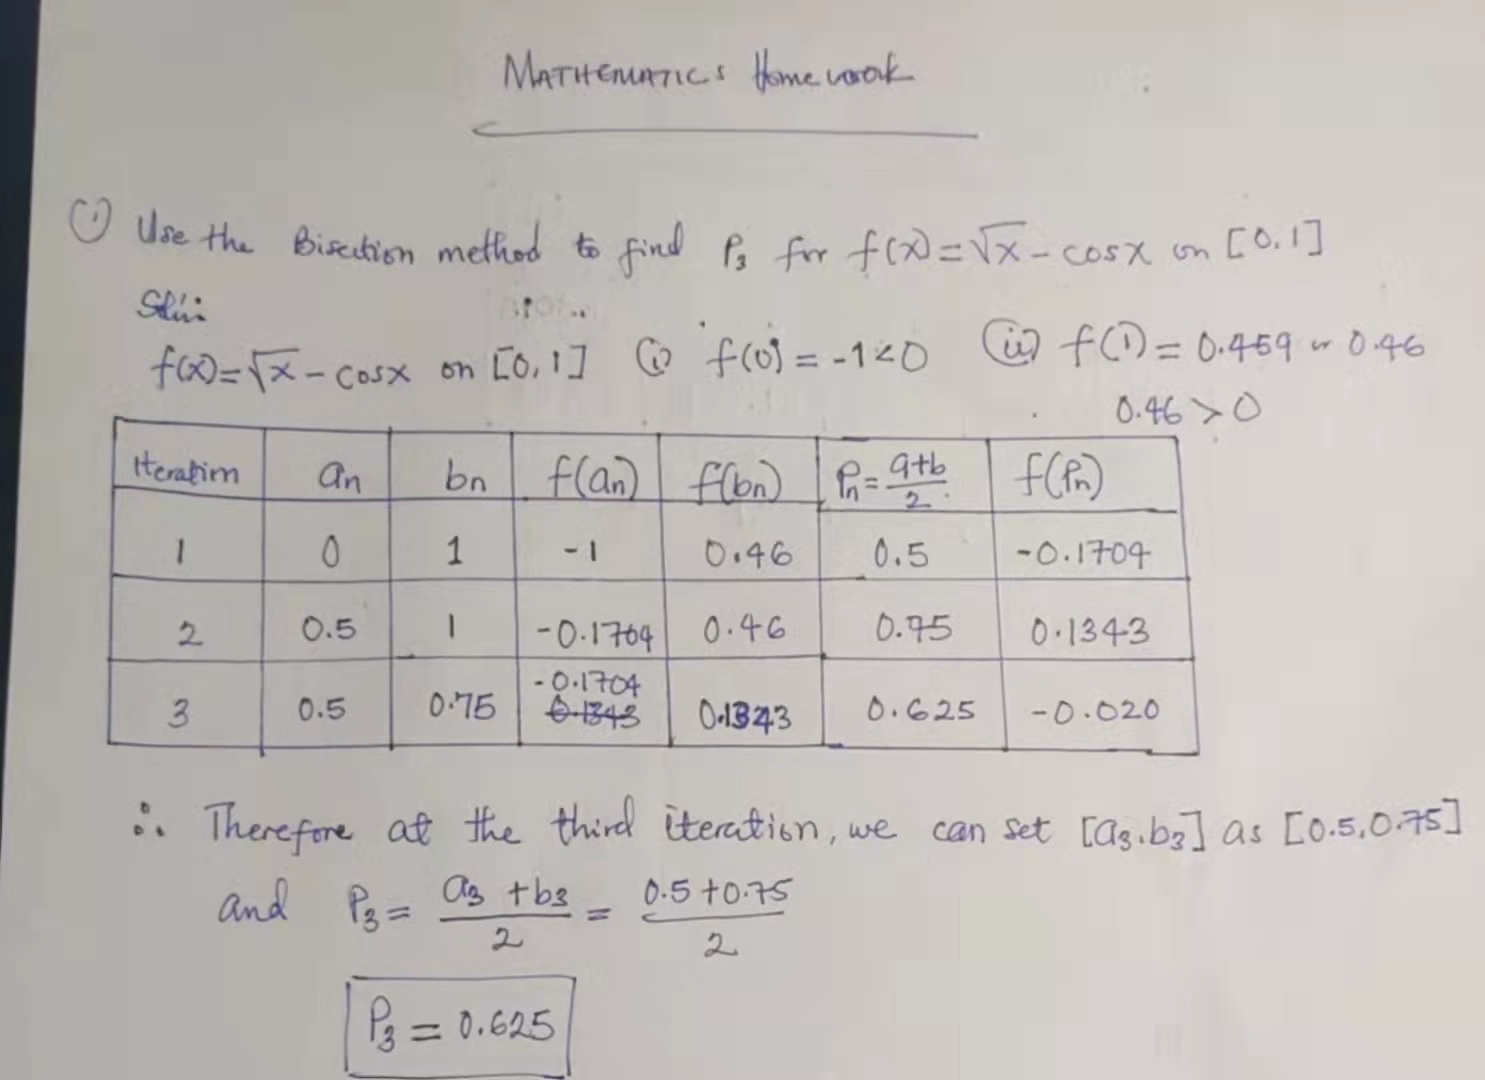 MATHEMATICS Homework
① Use the Bisection method to find P₃ for f(x)=√x - cosx on [0,1]
Soln:
f(x)=√x - cosx on [0,1] (i) f(0) = -1<0 (ii) f(1) = 0.459 or 0.46
0.46 > 0
Iteration an bn f(an) f(bn) Pn = a+b/2 f(Pn)
1 0 1 -1 0.46 0.5 -0.1704
2 0.5 1 -0.1704 0.46 0.75 0.1343
3 0.5 0.75 -0.1704 0.1343 0.1343 0.625 -0.020
∴ Therefore at the third iteration, we can set [a₃.b₃] as [0.5,0.75]
and P₃ = a₃ + b₃/2 = 0.5+0.75/2
P₃ = 0.625